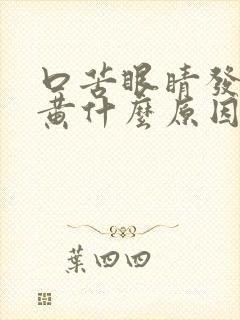 口苦眼睛發
黃什麼原因
葉四四